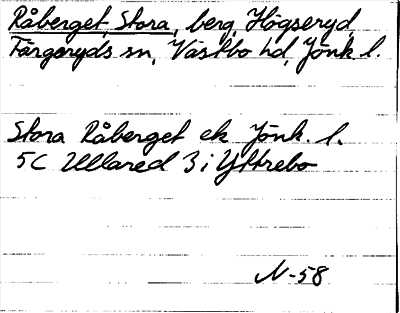 Råberget, Stora, berg, Högseryd,
Färgeryds sn, Västbo hd, Jönk l.
Stora Råberget ek Jönk. l.
5C Ullared 3 i Yttrebo
N-58